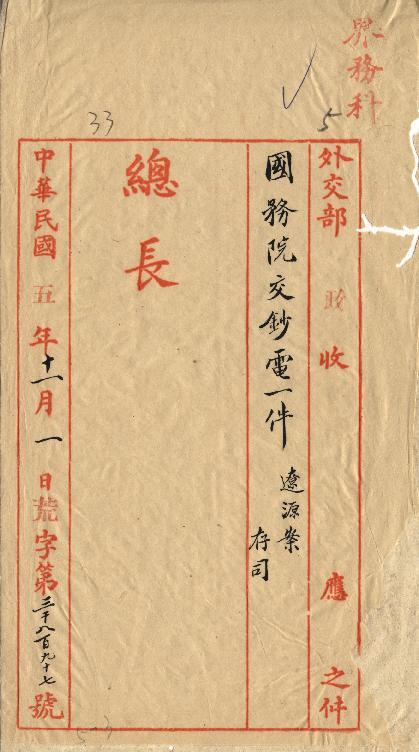 界務科
5
33
外交部 政 收 應 之件
國務院交鈔電一件
遼源案
存司
總長
中華民國五年十一月一日荒字第三千八百九十七號